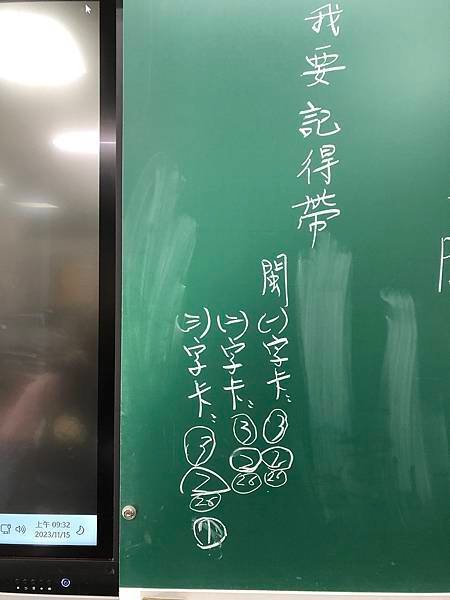 我要記得帶
閩
(一)字卡:③ ②/26
(二)字卡:③ ②/26
(三)字卡:③ 2/26 ①
上午 09:32
2023/11/15